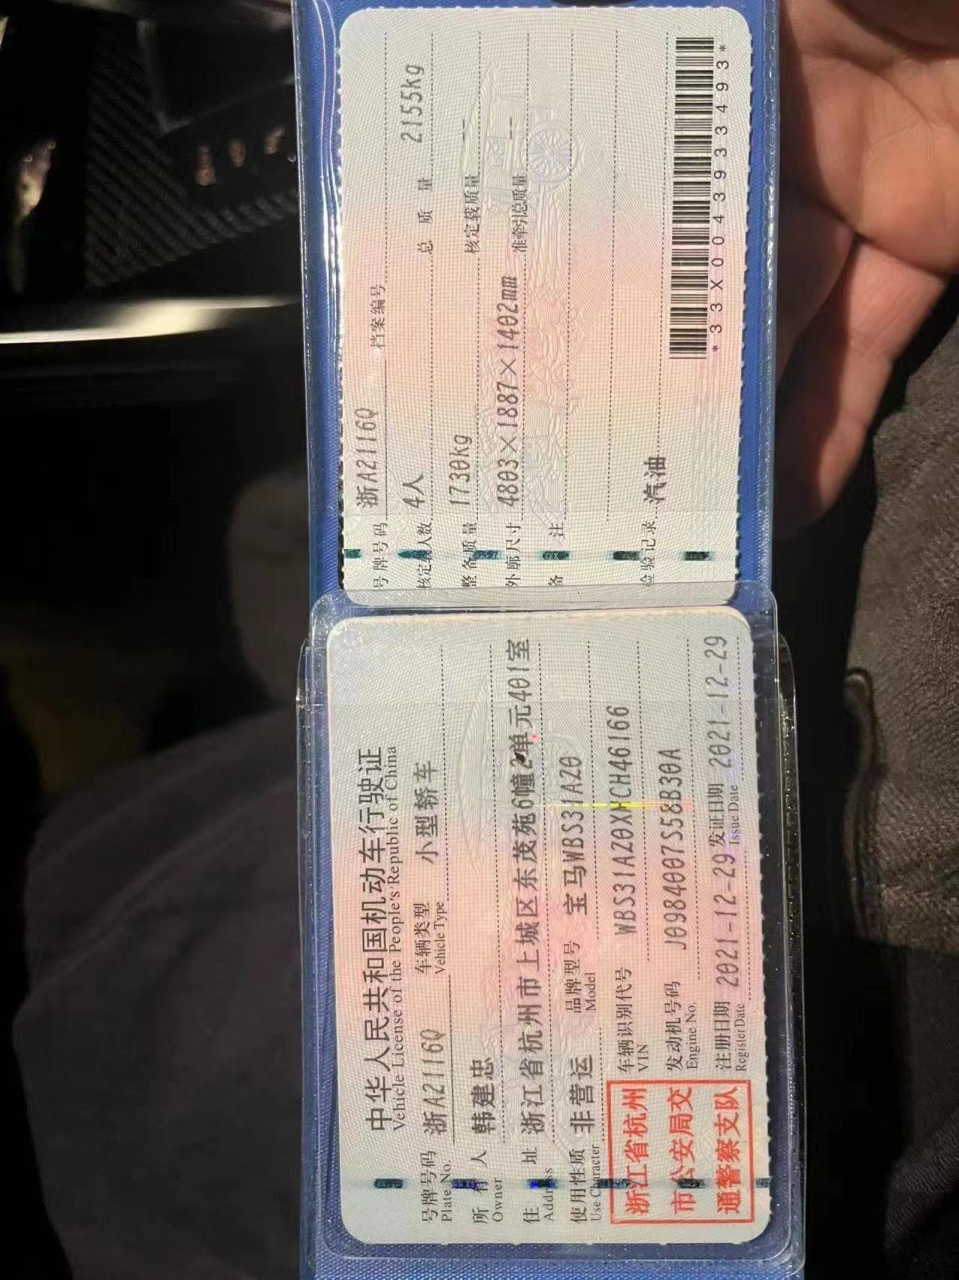 中华人民共和国机动车行驶证
Vehicle License of the People's Republic of China
号牌号码 浙A2116Q 车辆类型 小型轿车
Plate No. Vehicle Type
所有人 韩建忠
Owner
住址 浙江省杭州市上城区东茂苑6幢2单元401室
Address
使用性质 非营运 品牌型号 宝马WBS31AZ0
Use Character Model
浙江省杭州
市公安局交
通警察支队
车辆识别代号 WBS31AZ0XHCH46166
VIN
发动机号码 J0984007S58B30A
Engine No.
注册日期 2021-12-29 发证日期 2021-12-29
Register Date Issue Date
号牌号码 浙A2116Q 档案编号
核定载人数 4人 总质量 2155kg
整备质量 1730kg 核定载质量 --
外廓尺寸 4803×1887×1402mm 准牵引总质量 --
备注
检验记录 汽油
*33X0043933493*